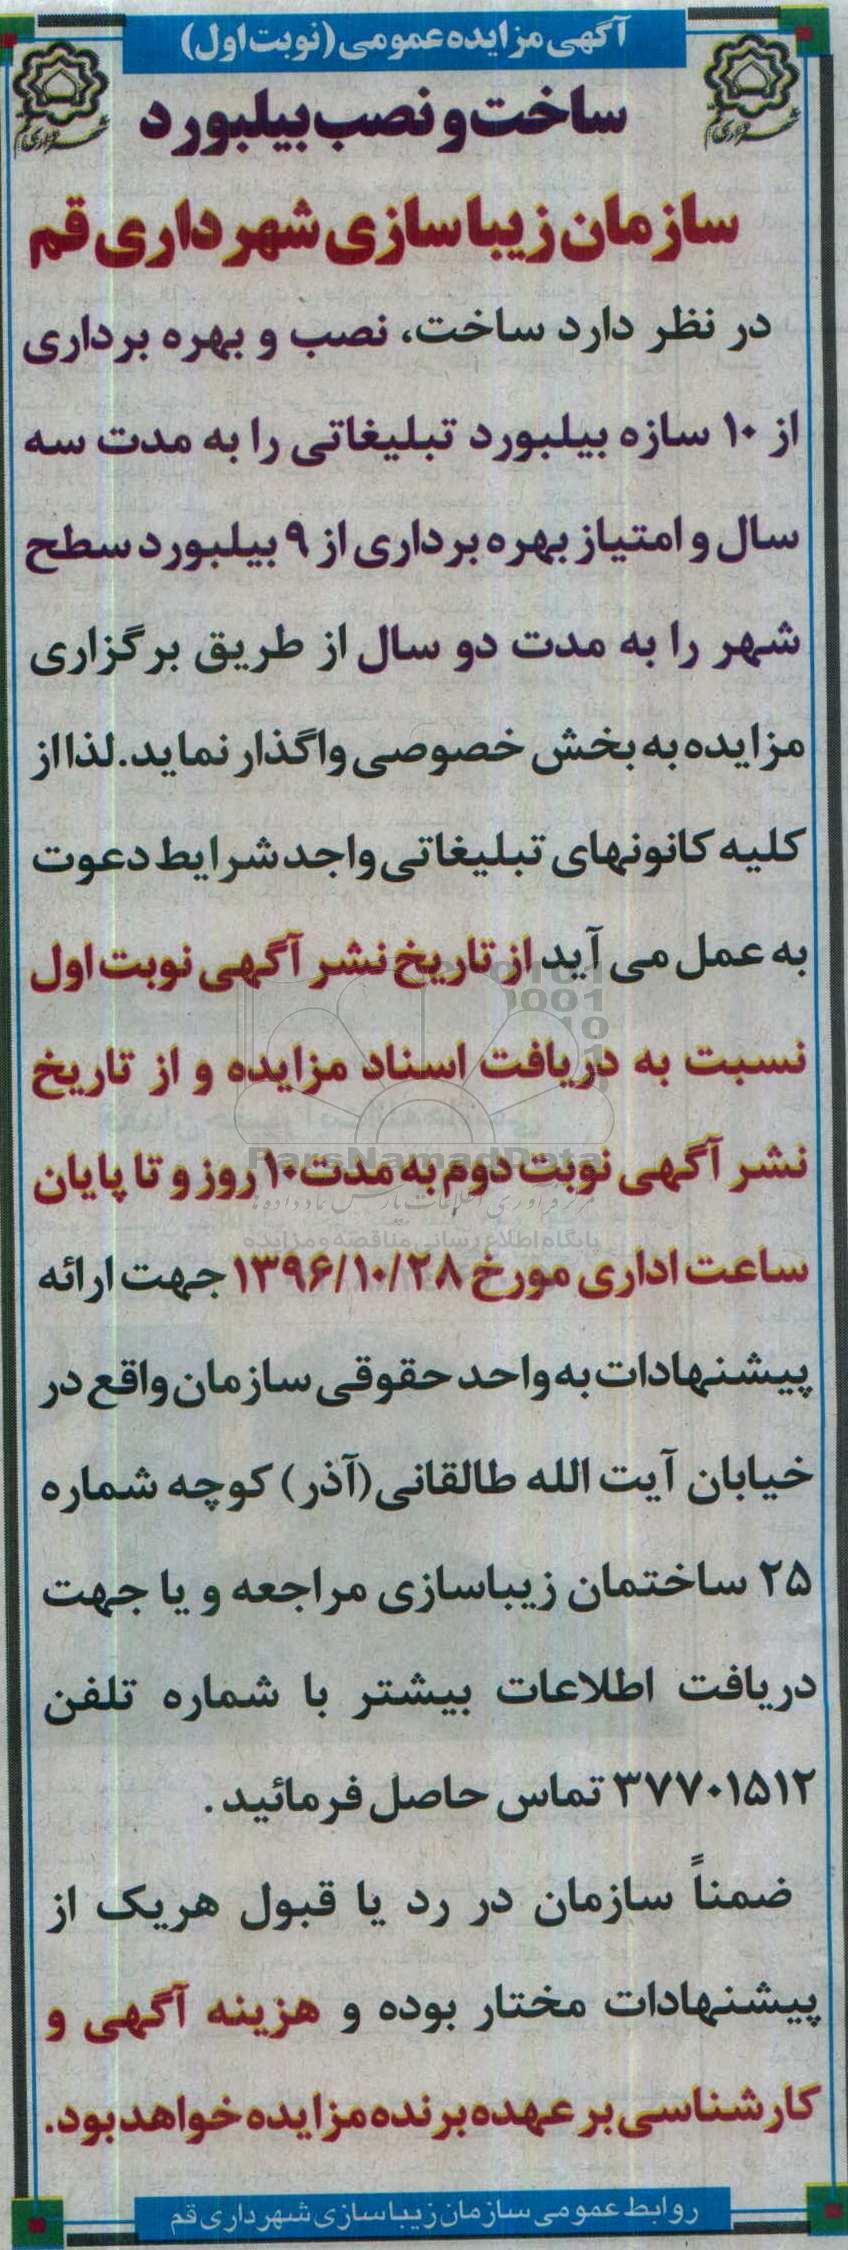 آگهی مزایده عمومی (نوبت اول)
ساخت و نصب بیلبورد
سازمان زیباسازی شهرداری قم
در نظر دارد ساخت، نصب و بهره برداری
از ۱۰ سازه بیلبورد تبلیغاتی را به مدت سه
سال و امتیاز بهره برداری از ۹ بیلبورد سطح
شهر را به مدت دو سال از طریق برگزاری
مزایده به بخش خصوصی واگذار نماید. لذا از
کلیه کانونهای تبلیغاتی واجد شرایط دعوت
به عمل می آید از تاریخ نشر آگهی نوبت اول
نسبت به دریافت اسناد مزایده و از تاریخ
نشر آگهی نوبت دوم به مدت ۱۰ روز و تا پایان
ساعت اداری مورخ ۱۳۹۶/۱۰/۲۸ جهت ارائه
پیشنهادات به واحد حقوقی سازمان واقع در
خیابان آیت الله طالقانی (آذر) کوچه شماره
۲۵ ساختمان زیباسازی مراجعه و یا جهت
دریافت اطلاعات بیشتر با شماره تلفن
۳۷۷۰۱۵۱۲ تماس حاصل فرمائید.
ضمناً سازمان در رد یا قبول هریک از
پیشنهادات مختار بوده و هزینه آگهی و
کارشناسی بر عهده برنده مزایده خواهد بود.
روابط عمومی سازمان زیباسازی شهرداری قم
شهرداری قم
شهرداری قم
ParsNamadData
پایگاه اطلاع رسانی مناقصه و مزایده